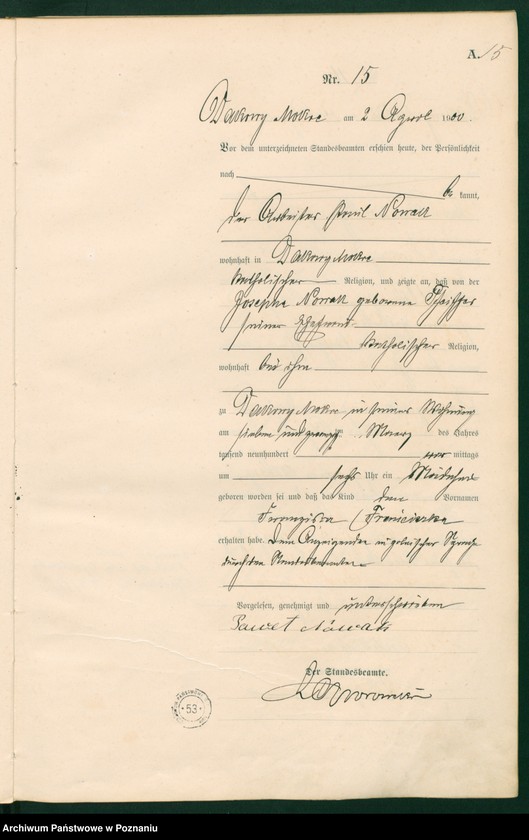 A. 15
Nr. 15
Dakowy Mokre am 2 April 1900.
Vor dem unterzeichneten Standesbeamten erschien heute, der Persönlichkeit
nach be kannt,
der Arbeiter Paul Nowak
wohnhaft in Dakowy Mokre
katholischer Religion, und zeigte an, daß von der
Josepha Nowak geborene
seiner Ehefrau
katholischer Religion,
wohnhaft bei ihm
zu Dakowy Mokre in seiner Wohnung
am sieben und zwanzigsten Maerz des Jahres
tausend neunhundert vor mittags
um sechs Uhr ein Mädchen
geboren worden sei und daß das Kind den Vornamen
Franziska (Franciszka
erhalten habe. Dem Anzeigenden in polnischer Sprache
durch den Standesbeamten
Vorgelesen, genehmigt und unterschrieben
Paweł Nowak
Der Standesbeamte.
53
Archiwum Państwowe w Poznaniu